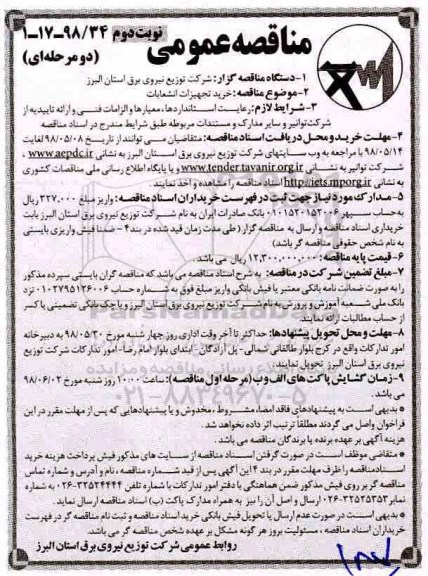 نوبت دوم ۹۸/۳۴-۱۷-۱
مناقصه عمومی (دو مرحله‌ای)
۱-دستگاه مناقصه گزار: شرکت توزیع نیروی برق استان البرز
۲-موضوع مناقصه: خرید تجهیزات انشعابات
۳-شرایط لازم: رعایت استانداردها، معیارها و الزامات فنی و ارائه تاییدیه از
شرکت توانیر و سایر مدارک و مستندات مربوطه طبق شرایط مندرج در اسناد مناقصه
۴-مهلت خرید و محل دریافت اسناد مناقصه: متقاضیان می توانند از تاریخ ۹۸/۰۵/۰۸ لغایت
۹۸/۰۵/۱۴ با مراجعه به وب سایتهای شرکت توزیع نیروی برق استان البرز به نشانی www.aepdc.ir ،
شرکت توانیر به نشانی www.tender.tavanir.org.ir و یا پایگاه اطلاع رسانی ملی مناقصات کشوری
به نشانی http://iets.mporg.ir اسناد مناقصه را مشاهده و اخذ نمایند
۵-مدارک مورد نیاز جهت ثبت در فهرست خریداران اسناد مناقصه: واریز مبلغ ۳۲۷.۰۰۰ ریال
به حساب سپهر ۰۱۰۱۵۲۰۱۵۲۰۰۶ بانک صادرات ایران به نام شرکت توزیع نیروی برق استان البرز بابت
خریداری اسناد مناقصه و ارسال به مناقصه گزار (طی مدت زمان قید شده در بند ۴- ضمنا فیش واریزی بایستی
به نام شخص حقوقی مناقصه گر باشد)
۶-قیمت پایه مناقصه: ۱۲.۳۰۰.۰۰۰.۰۰۰ ریال می باشد.
۷-مبلغ تضمین شرکت در مناقصه: به شرح اسناد مناقصه می باشد که مناقصه گران بایستی سپرده مذکور
را به صورت ضمانت نامه بانکی معتبر یا فیش بانکی واریز مبلغ فوق به شماره حساب ۰۱۰۲۷۹۵۱۳۶۰۰۶ نزد
بانک ملی شعبه آموزش و پرورش به نام شرکت توزیع نیروی برق استان البرز و یا چک بانکی تضمینی یا کسر
از حساب مطالبات ارائه نمایند
۸-مهلت و محل تحویل پیشنهادها: حداکثر تا آخر وقت اداری روز چهارشنبه مورخ ۹۸/۰۵/۳۰ به دبیرخانه
امور تدارکات واقع در کرج بلوار طالقانی شمالی- پل آزادگان- ابتدای بلوار امام رضا- امور تدارکات شرکت توزیع
نیروی برق استان البرز تحویل نمایند.
۹-زمان گشایش پاکت های الف و ب (مرحله اول مناقصه): ساعت ۱۰:۰۰ روز شنبه مورخ ۹۸/۰۶/۰۲
می باشد.
* بدیهی است به پیشنهادهای فاقد امضا، مشروط، مخدوش و یا پیشنهادهایی که پس از مهلت مقرر در این
فراخوان واصل می گردند مطلقا ترتیب اثر داده نخواهد شد.
هزینه آگهی بر عهده برنده یا برندگان مناقصه می باشد.
* متقاضی موظف است در صورت گرفتن اسناد مناقصه از سایت های مذکور فیش پرداخت هزینه خرید
اسناد مناقصه را ظرف مهلت مقرر در بند ۴ این آگهی پس از قید شماره مناقصه، نام و آدرس و شماره تماس
مناقصه گر بر روی فیش مذکور ضمن هماهنگی با دفتر امور تدارکات با شماره تلفن ۳۲۵۲۴۴۴۴-۰۲۶ به شماره
نمابر ۳۲۵۲۵۳۵۳-۰۲۶ ارسال و اصل آن را نیز به همراه مدارک پاکت (ب) اسناد مناقصه ارسال نماید.
* بدیهی است در صورت عدم ارسال یا تحویل فیش بانکی خرید اسناد مناقصه و ثبت نام مناقصه گر در فهرست
خریداران اسناد مناقصه ، مسئولیت بروز هر گونه مشکل بر عهده شخص مناقصه گر می باشد.
روابط عمومی شرکت توزیع نیروی برق استان البرز
ParsNamadData
۰۲۱-۸۸۳۴۹۶۷۰-۵